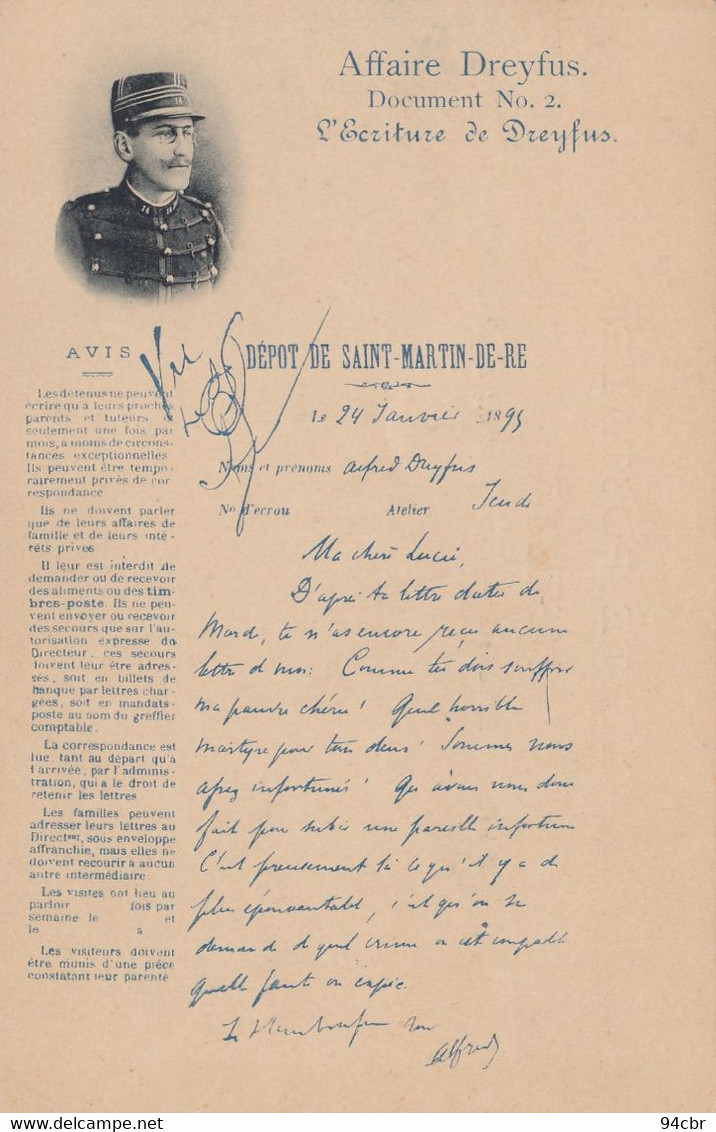 Affaire Dreyfus.
Document No. 2.
L'Ecriture de Dreyfus.
AVIS
Les détenus ne peuvent
écrire qu'à leurs proches
parents et tuteurs et
seulement une fois par
mois, à moins de circons-
tances exceptionnelles
Ils peuvent être tempo-
rairement privés de cor
respondance
Ils ne doivent parler
que de leurs affaires de
famille et de leurs inté-
rêts privés
Il leur est interdit de
demander ou de recevoir
des aliments ou des tim-
bres-poste. Ils ne peu-
vent envoyer ou recevoir
des secours que sur l'au-
torisation expresse du
Directeur, ces secours
doivent leur être adres-
sés, soit en billets de
banque par lettres char-
gées, soit en mandats-
poste au nom du greffier
comptable.
La correspondance est
lue, tant au départ qu'à
l'arrivée, par l'adminis-
tration, qui a le droit de
retenir les lettres
Les familles peuvent
adresser leurs lettres au
Direct, sous enveloppe
affranchie, mais elles ne
doivent recourir à aucun
autre intermédiaire.
Les visites ont lieu au
parloir fois par
semaine le et
le a
Les visiteurs doivent
être munis d'une pièce
constatant leur parenté
Vu
DÉPOT DE SAINT-MARTIN-DE-RE
Le 24 Janvier 1895
Noms et prénoms Alfred Dreyfus
No d'ecrou Atelier Jeudi
Ma chère Lucie,
D'après ta lettre datée de
Mardi, tu n'as encore reçu aucune
lettre de moi. Comme tu dois souffrir
ma pauvre chérie! Quel horrible
martyre pour tous deux! Sommes nous
assez infortunés! Qu'avons nous donc
fait pour subir une pareille infortune
C'est precisement là ce qu'il y a de
plus épouvantable, c'est qu'on se
demande de quel crime on est coupable
quelle faute on expie.
Alfred
94cbr
delcampe.net